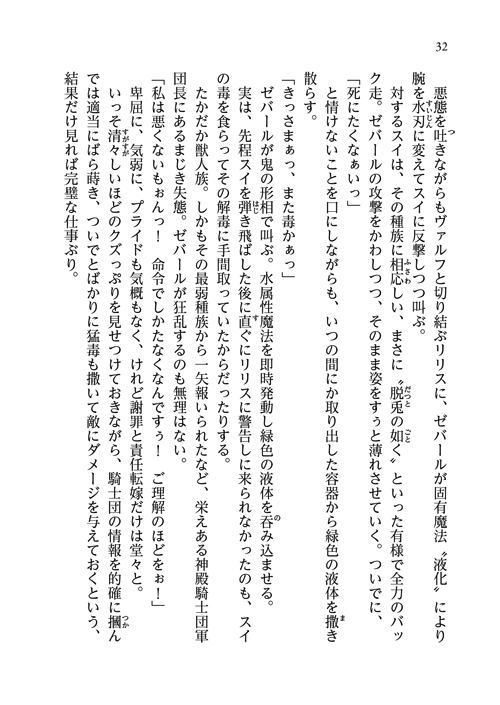 32
悪態を吐きながらもヴァルフと切り結ぶリリスに、ゼバールが固有魔法〝液化〟により
腕を水刃に変えてスイに反撃しつつ叫ぶ。
対するスイは、その種族に相応しい、まさに〝脱兎の如く〟といった有様で全力のバッ
ク走。ゼバールの攻撃をかわしつつ、そのまま姿をすぅと薄れさせていく。ついでに、
「死にたくなぁいっ」
と情けないことを口にしながらも、いつの間にか取り出した容器から緑色の液体を撒き
散らす。
「きっさまぁっ、また毒かぁっ」
ゼバールが鬼の形相で叫ぶ。水属性魔法を即時発動し緑色の液体を呑み込ませる。
実は、先程スイを弾き飛ばした後に直ぐにリリスに警告しに来られなかったのも、スイ
の毒を食らってその解毒に手間取っていたからだったりする。
たかだか獣人族。しかもその最弱種族から一矢報いられたなど、栄えある神殿騎士団軍
団長にあるまじき失態。ゼバールが狂乱するのも無理はない。
「私は悪くないもぉんっ！　命令でしかたなくなんですぅ！　ご理解のほどをぉ！」
卑屈に、気弱に、プライドも気概もなく、けれど謝罪と責任転嫁だけは堂々と。
いっそ清々しいほどのクズっぷりを見せつけておきながら、騎士団の情報を的確に摑ん
では適当にばら蒔き、ついでとばかりに猛毒も撒いて敵にダメージを与えておくという、
結果だけ見れば完璧な仕事ぶり。